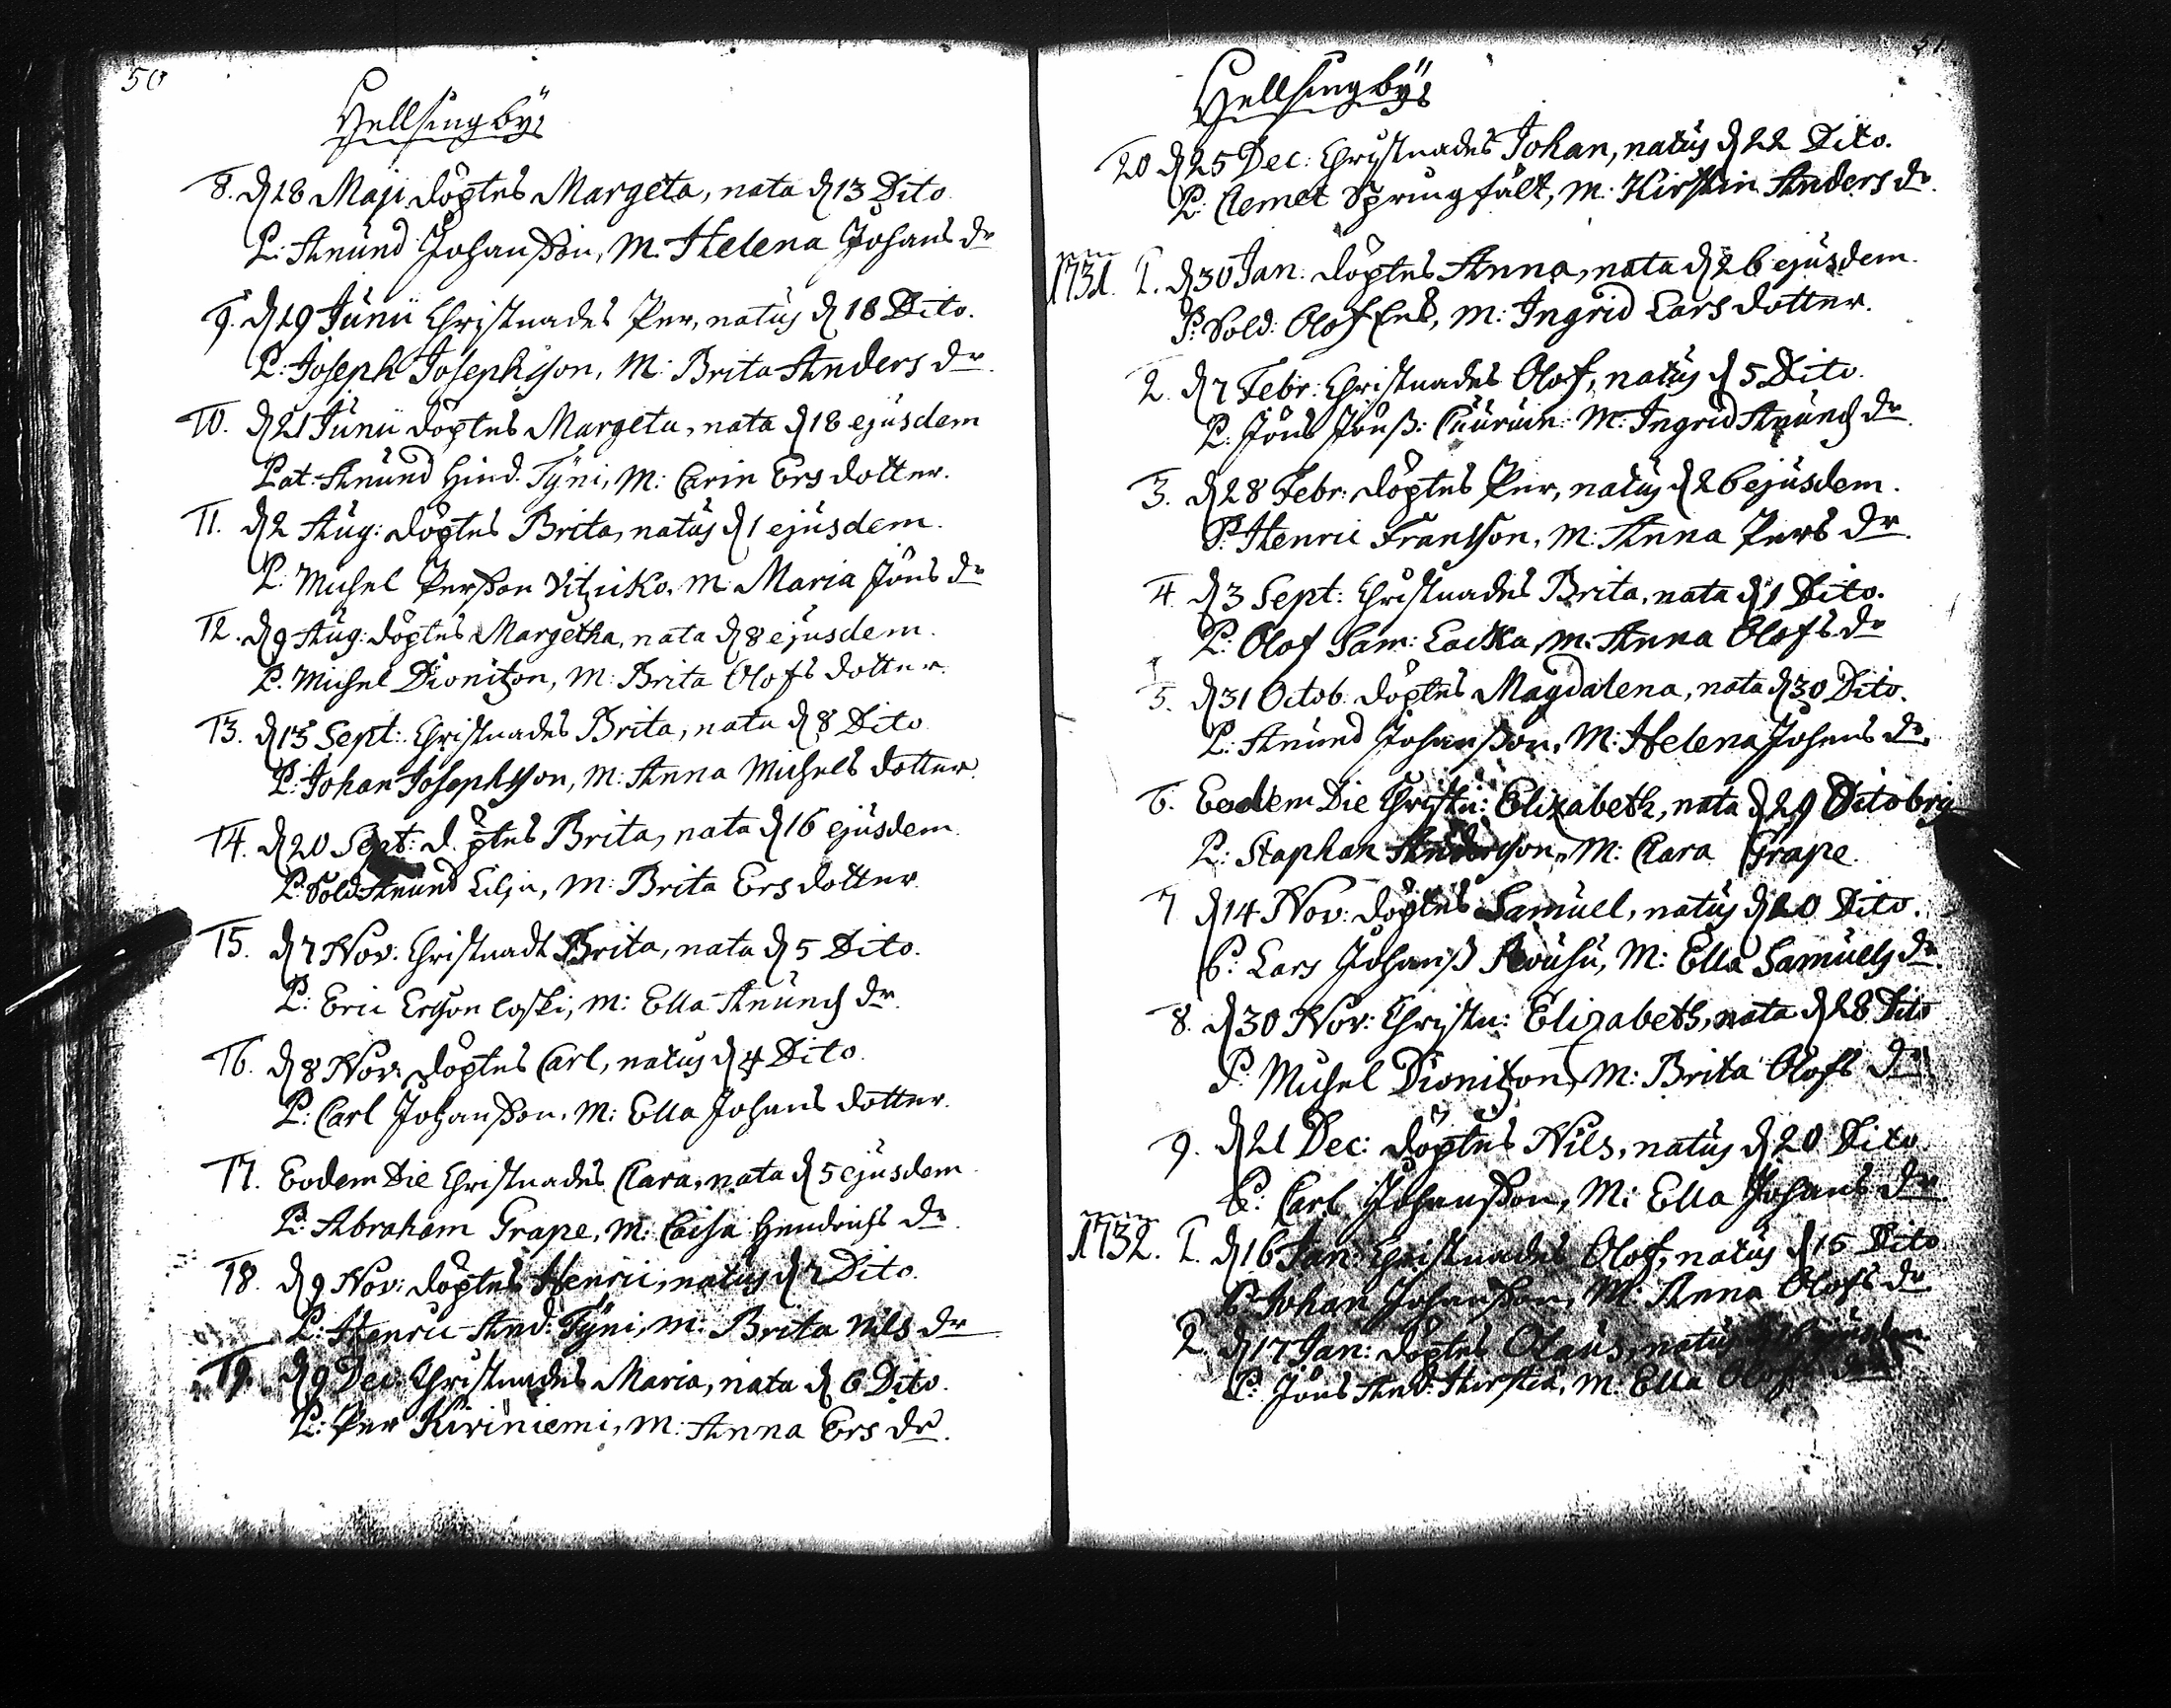 50
Hellsingbÿs
8. d 18 Maji döptes Margeta, nata d 13 Dito
P: Anund Johansson, M. Helena Johans dr
9. d 19 Junii Christnades Per, natus d 18 Dito.
P: Joseph Josephsson, M: Brita Anders dr.
10. d 21 Junii döptes Margeta, nata d 18 ejusdem
Pat: Anund Hind. Tÿni, M: Carin Ersdotter.
11. d 2 Aug: döptes Brita, natus d 1 ejusdem.
P: Michel Persson M. Maria Jöns dr
12. d 9 Aug: döptes Margetha, nata d 8 ejusdem.
P. Michel Dionitzon, M: Brita Olofs dotter.
13. d 13 Sept: Christnades Brita, nata d 8 Dito
P: Johan Josephsson, M: Anna Michels dotter.
14. d 20 Sept: d. ptes Brita, nata d 16 ejusdem.
P: Sold Anund Lilja, M: Brita Ersdotter.
15. d 7 Nov. Christnad Brita, nata d 5 Dito.
P: Eric Ersson Coski, M: Ella Anunds dr.
16. d 8 Nov: döptes Carl, natus d 4 Dito.
P: Carl Johansson, M: Ella Johans dotter.
17. Eodem Die Christnades Clara, nata d 5 ejusdem
P: Abraham Grape, M: Caisa Hendrichs dr.
18. d 9 Nov: döptes Henric, natus d 7 Dito.
P: Henric And: Tÿni, M: Brita Nils dr
19. d 9 Dec: Christnades Maria, nata d 6 Dito.
P: Per Kiviniemi, M: Anna Ers dr.
51
Hellsingbÿs
20 d 25 Dec: Christnades Johan, natus d 22 Dito.
P: Clemet Springfält, M: Kirstin Anders dr.
1731. 1. d 30 Jan: döptes Anna, nata d 26 ejusdem.
P: Sold: Olof M: Ingrid Lars dotter.
2. d 7 Febr: Christnades Olof, natus d 5 Dito.
P: Jöns Jönss: M: Ingrid Anunds dr.
3. d 28 Febr: döptes Per, natus d 26 ejusdem.
P: Henric Fransson, M: Anna Pers dr.
4. d 3 Sept: Christnades Brita, nata d 1 Dito.
P: Olof Sam: Lacka, M: Anna Olofs dr
5. d 31 Octob. döptes Magdalena, nata d 30 Dito.
P: Anund Johansson, M: Helena Johans dr.
6. Eodem Die Christn: Elizabeth, nata d 29 Octobris
P: Staphan Andersson, M: Clara Grape.
7 d 14 Nov: döptes Samuel, natus d 10 Dito.
P: Lars Johanss Rousu, M: Ella Samuels dr.
8. d 30 Nov: Christn: Elizabeth, nata d 28 Dito
P: Michel Dionitzon, M: Brita Olofs dr
9. d 21 Dec: döptes Nils, natus d 20 Dito
P: Carl Johansson, M: Ella Johans dr.
1732. 1. d 16 Jan: Christnades Olof, natus d 15 Dito
P: Johan Johansson, M: Anna Olofs dr
2 d 17 Jan: döptes Olaus, natus d 16 ejusdem
P: Jöns And: M: Ella Olofs dr